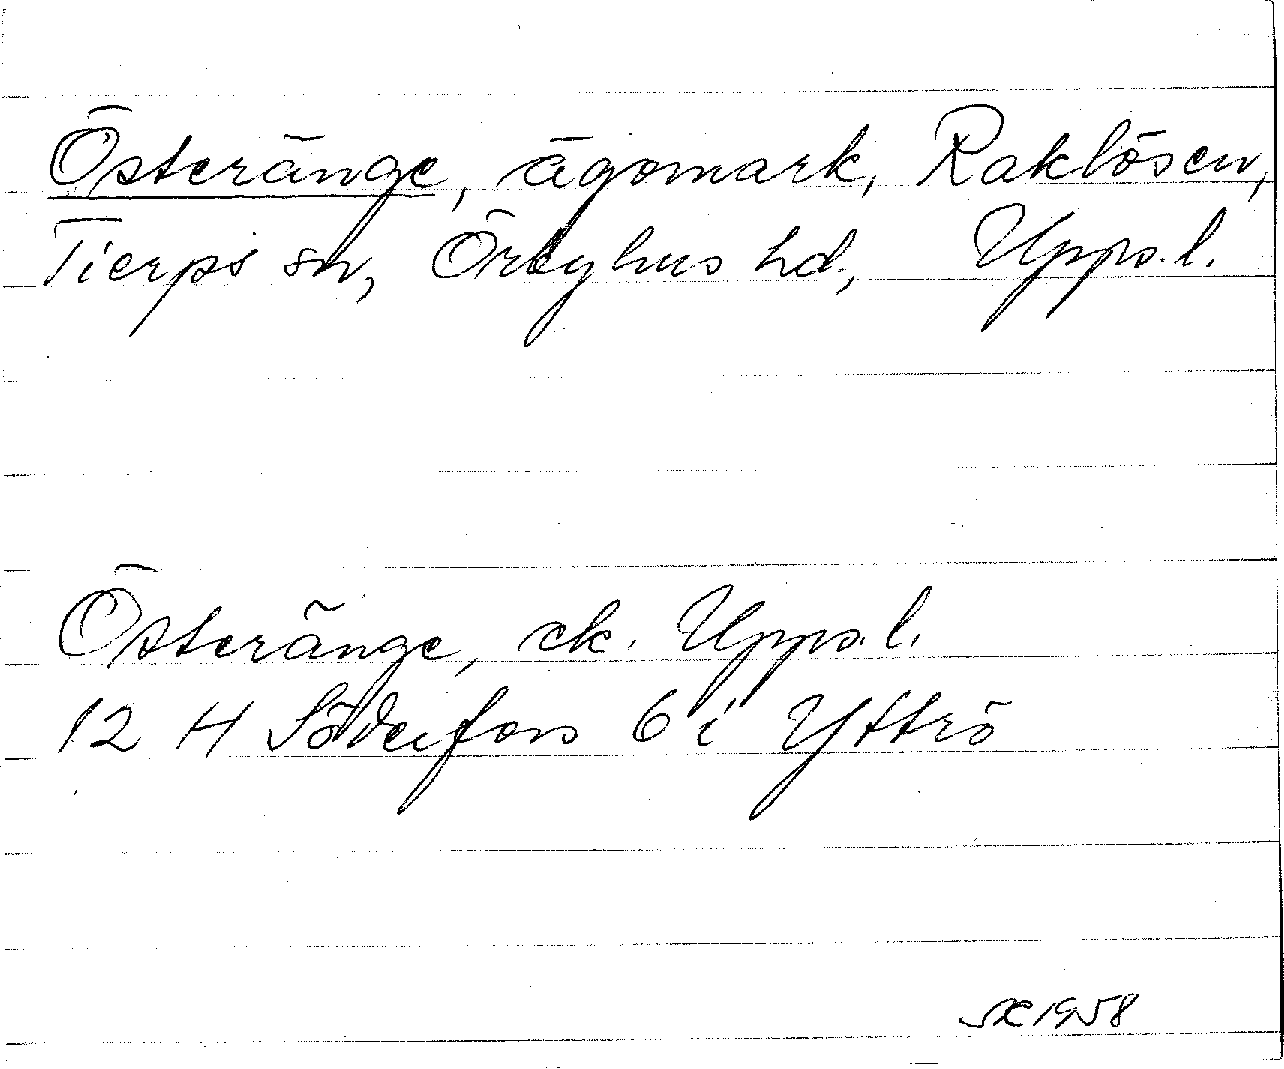 Österänge, ägomark, Raklösen,
Tierps sn, Örbyhus hd, Upps. l.
Österänge, ek. Upps. l.
12 H Söderfors 6 i Yttrö
1958